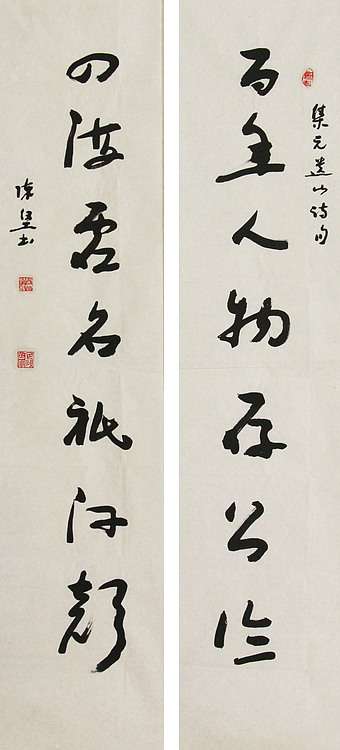 集元遺山诗句
百年人物存公论
四海虚名祇汗颜
陈
书